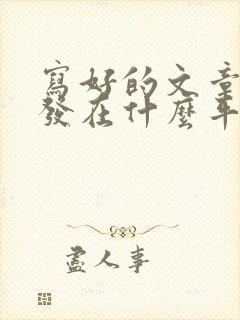 寫好的文章
發在什麼平
盡人事